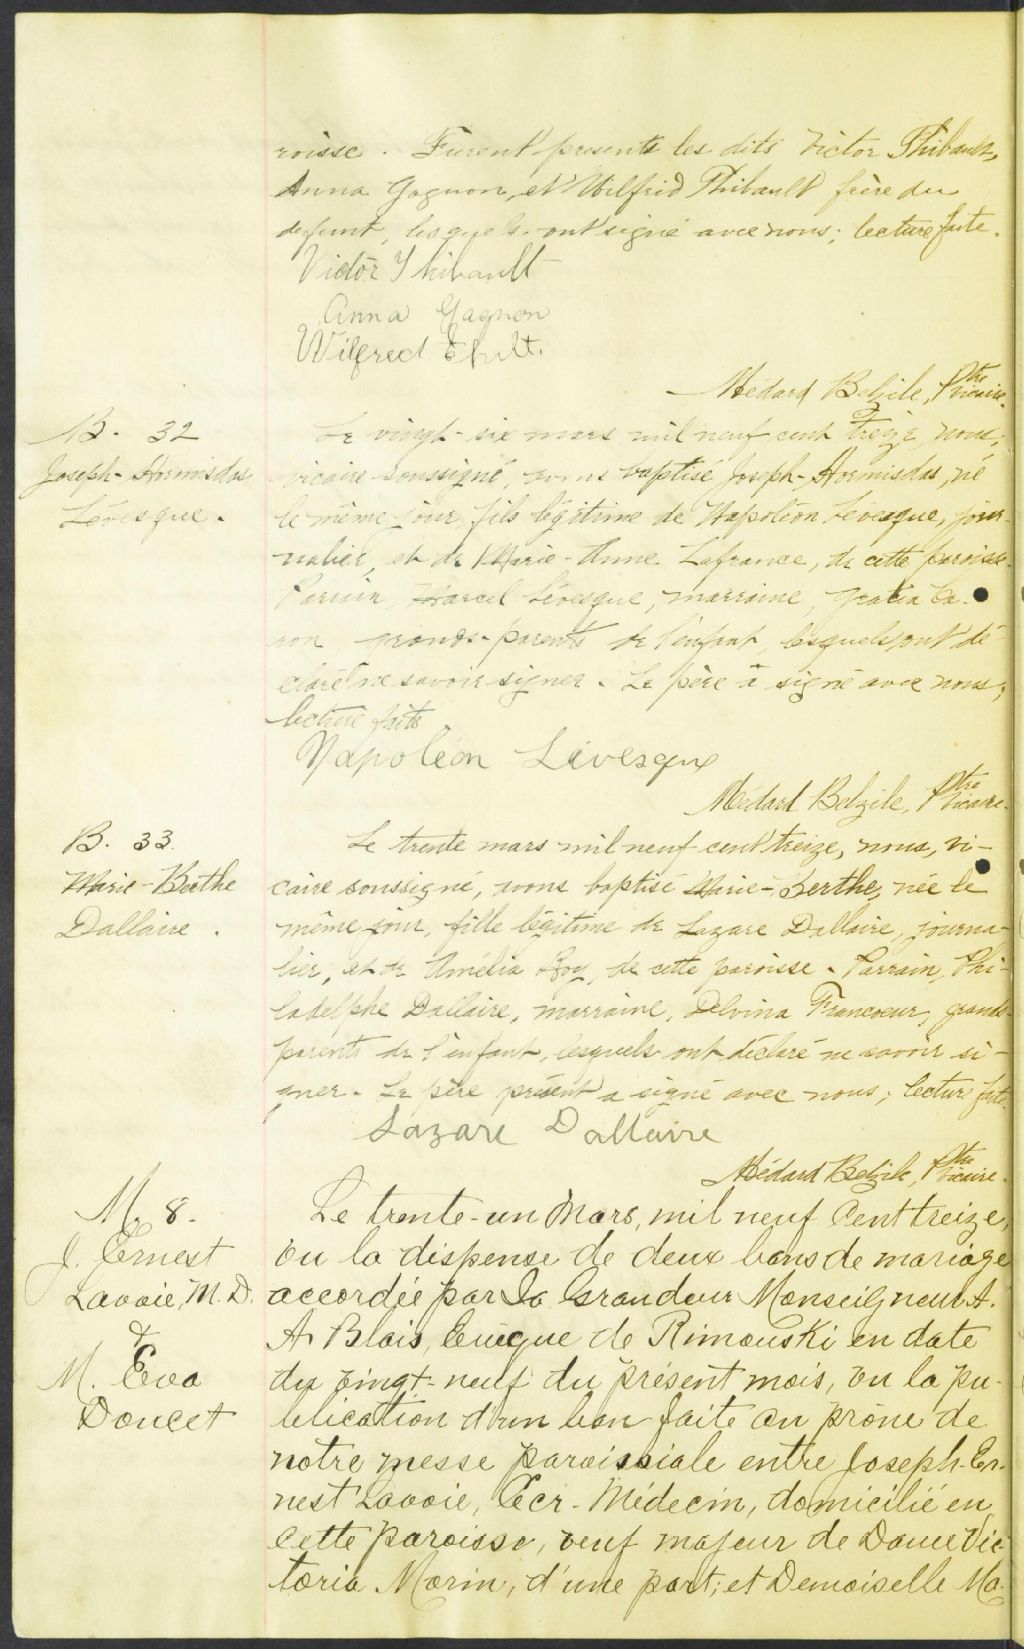 roisse. Furent présents les dits Victor Thibault,
Anna Gagnon, et Wilfrid Thibault frère du
defunt, lesquels ont signé avec nous; lecture faite.
Victor Thibault
Anna Gagnon
Wilfred
Médard Belzile, Ptre
Vicaire.
B. 32
Joseph-Hormisdas
Lévesque.
Le vingt-six mars mil neuf cent treize, nous,
vicaire soussigné, avons baptisé Joseph-Hormisdas, né
le même jour, fils légitime de Napoléon Lévesque, jour-
nalier, et de Marie-Anne Lafrance, de cette paroisse.
Parrain, Marcel Lévesque, marraine, Gratia Ca-
ron, grands-parents de l'enfant, lesquels ont dé-
claré ne savoir signer. Le père a signé avec nous;
lecture faite.
Napoléon Lévesque
Médard Belzile, Ptre
Vicaire.
B. 33.
Marie-Berthe
Dallaire.
Le trente mars mil neuf cent treize, nous, vi-
caire soussigné, avons baptisé Marie-Berthe, née le
même jour, fille légitime de Lazare Dallaire, journa-
lier, et de Amélia Roy, de cette paroisse. Parrain, Phi-
ladelphe Dallaire, marraine, Delvina Francoeur, grands-
parents de l'enfant, lesquels ont déclaré ne savoir si-
gner. Le père présent a signé avec nous; lecture faite.
Lazare Dallaire
Médard Belzile, Ptre
Vicaire.
M. 8.
J. Ernest
Lavoie, M.D.
&
M. Eva
Doucet
Le trente-un Mars, mil neuf cent treize,
vu la dispense de deux bans de mariage
accordée par Sa Grandeur Monseigneur A.
A. Blais, Evêque de Rimouski en date
du vingt-neuf du présent mois, vu la pu-
blication d'un ban faite au prône de
notre messe paroissiale entre Joseph-Er-
nest Lavoie, Ecr. Médecin, domicilié en
cette paroisse, veuf majeur de Dame Vic-
toria Morin, d'une part; et Demoiselle Ma-